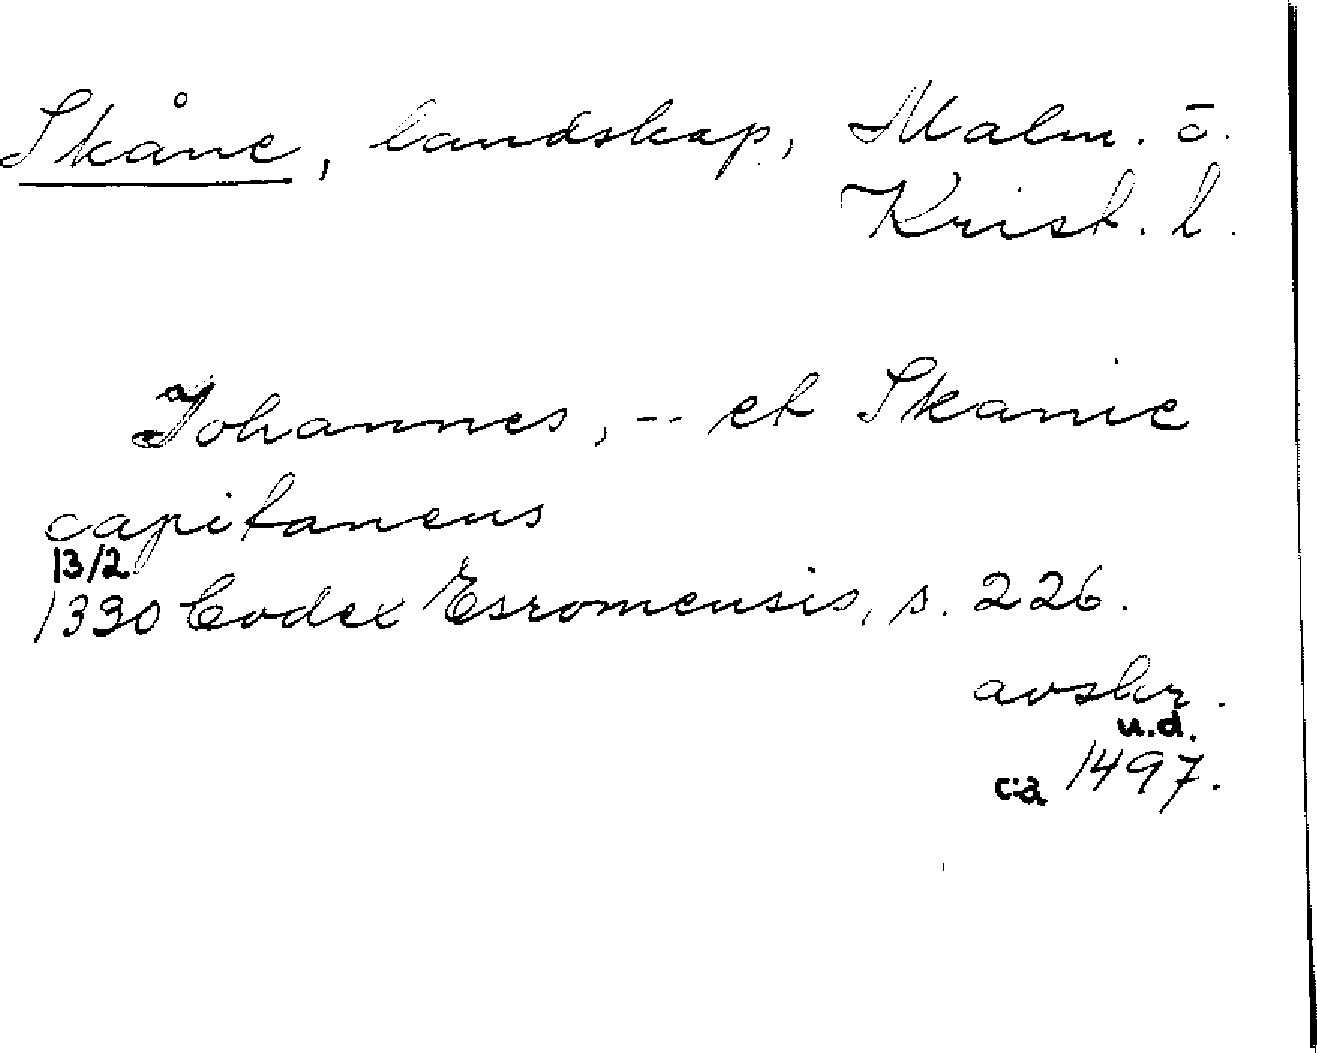 Skåne, landskap, Malm. o.
Krist. l.
Johannes, -- et Skanie
capitaneus
13/2
1330 Codex Esromensis, s. 226.
avskr.
u.d.
ca 1497.